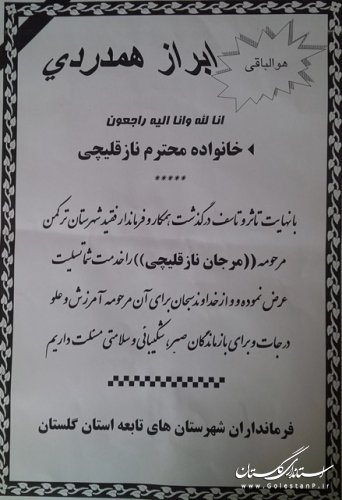 هوالباقی
ابراز همدردي
انا لله وانا الیه راجعون
خانواده محترم نازقلیچی
*****
با نهایت تاثر و تاسف درگذشت همکار و فرماندار فقید شهرستان ترکمن
مرحومه ((مرجان نازقلیچی)) را خدمت شما تسلیت
عرض نموده و و از خداوند سبحان برای آن مرحومه آمرزش و علو
درجات و برای بازماندگان صبر، شکیبائی و سلامتی مسئلت داریم
فرمانداران شهرستان های تابعه استان گلستان
استانداری گلستان
www.GolestanP.ir